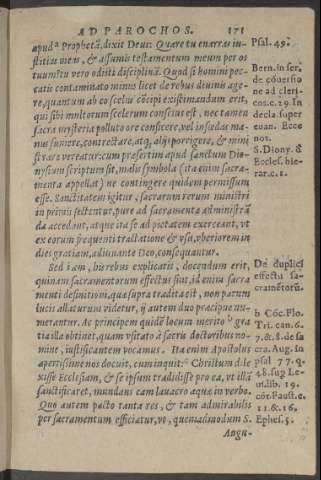 AD PAROCHOS. 171
apud a Prophetã, dixit Deus: Quare tu enarras iu-
stitias meas, & assumis testamentum meum per os
tuum? tu vero odisti disciplinã. Quod si homini pec-
catis contaminato minus licet de rebus diuinis age-
re, quantum ab eo scelus cõcipi existimandum erit,
qui sibi multorum scelerum conscius est, nec tamen
sacra mysteria polluto ore conficere, vel in fœdas ma-
nus sumere, contrectare, atq, alijs porrigere, & mini
strare vereatur: cum præsertim apud sanctum Dio-
nysium scriptum sit, malis symbola (ita enim sacra-
menta appellat) ne contingere quidem permissum
esse. Sanctitatem igitur, sacrarum rerum ministri
in primis sectentur, pure ad sacramenta administrã
da accedant, atque ita se ad pietatem exerceant, vt
ex eorum frequenti tractatione & vsu, vberiorem in
dies gratiam, adiuuante Deo, consequantur.
Sed iam, his rebus explicatis, docendum erit,
quinam sacramentorum effectus sint, id enim sacra
menti definitioni, quæ supra tradita est, non parum
lucis allaturum videtur, ij autem duo præcipue nu-
merantur. Ac principem quidẽ locum merito b gra
tia illa obtinet, quam vsitato à sacris doctoribus no-
mine, iustificantem vocamus. Ita enim Apostolus
apertissime nos docuit, cum inquit: c Christum dile
xisse Ecclesiam, & se ipsum tradidisse pro ea, vt illã
sanctificaret, mundans eam lauacro aquæ in verbo.
Quo autem pacto tanta res, & tam admirabilis
per sacramentum efficiatur, vt, quemadmodum S.
Augu-
Psal. 49.
Bern. in ser.
de cõuersio
ne ad cleri-
cos. c. 29. In
decla. super
euan. Ecce
nos.
S. Diony. de
Eccles. hie-
rar. c. 1.
De duplici
effectu sa-
cramẽtorũ.
b Cõc. Flo.
Tri. can. 6.
7. & 8. de sa
cra. Aug. in
psal 77. q.
48. sup Le-
uit. lib. 19.
cõt. Faust. c.
11. & 16.
Ephes. 5.